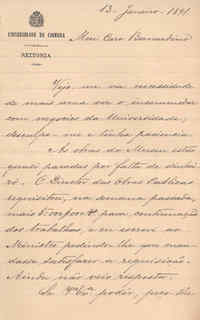 13. Janeiro, 1891
UNIVERSIDADE DE COIMBRA
REITORIA
Meu Caro Bernardino
Vejo-me na necessidade
de mais uma vez o incommodar
com negocios da Universidade,
desculpe-me e tenha paciencia.
As obras do Museu estão
quasi paradas por falta de dinhei
ro. O Director das Obras Publicas
requisitou, na semana passada,
mais para continuação
dos trabalhos, e eu escrevi ao
Ministro pedindo-lhe que man
dasse satisfazer a requisição.
Ainda não veio resposta.
Se V. Ex.ª poder, peço-lhe